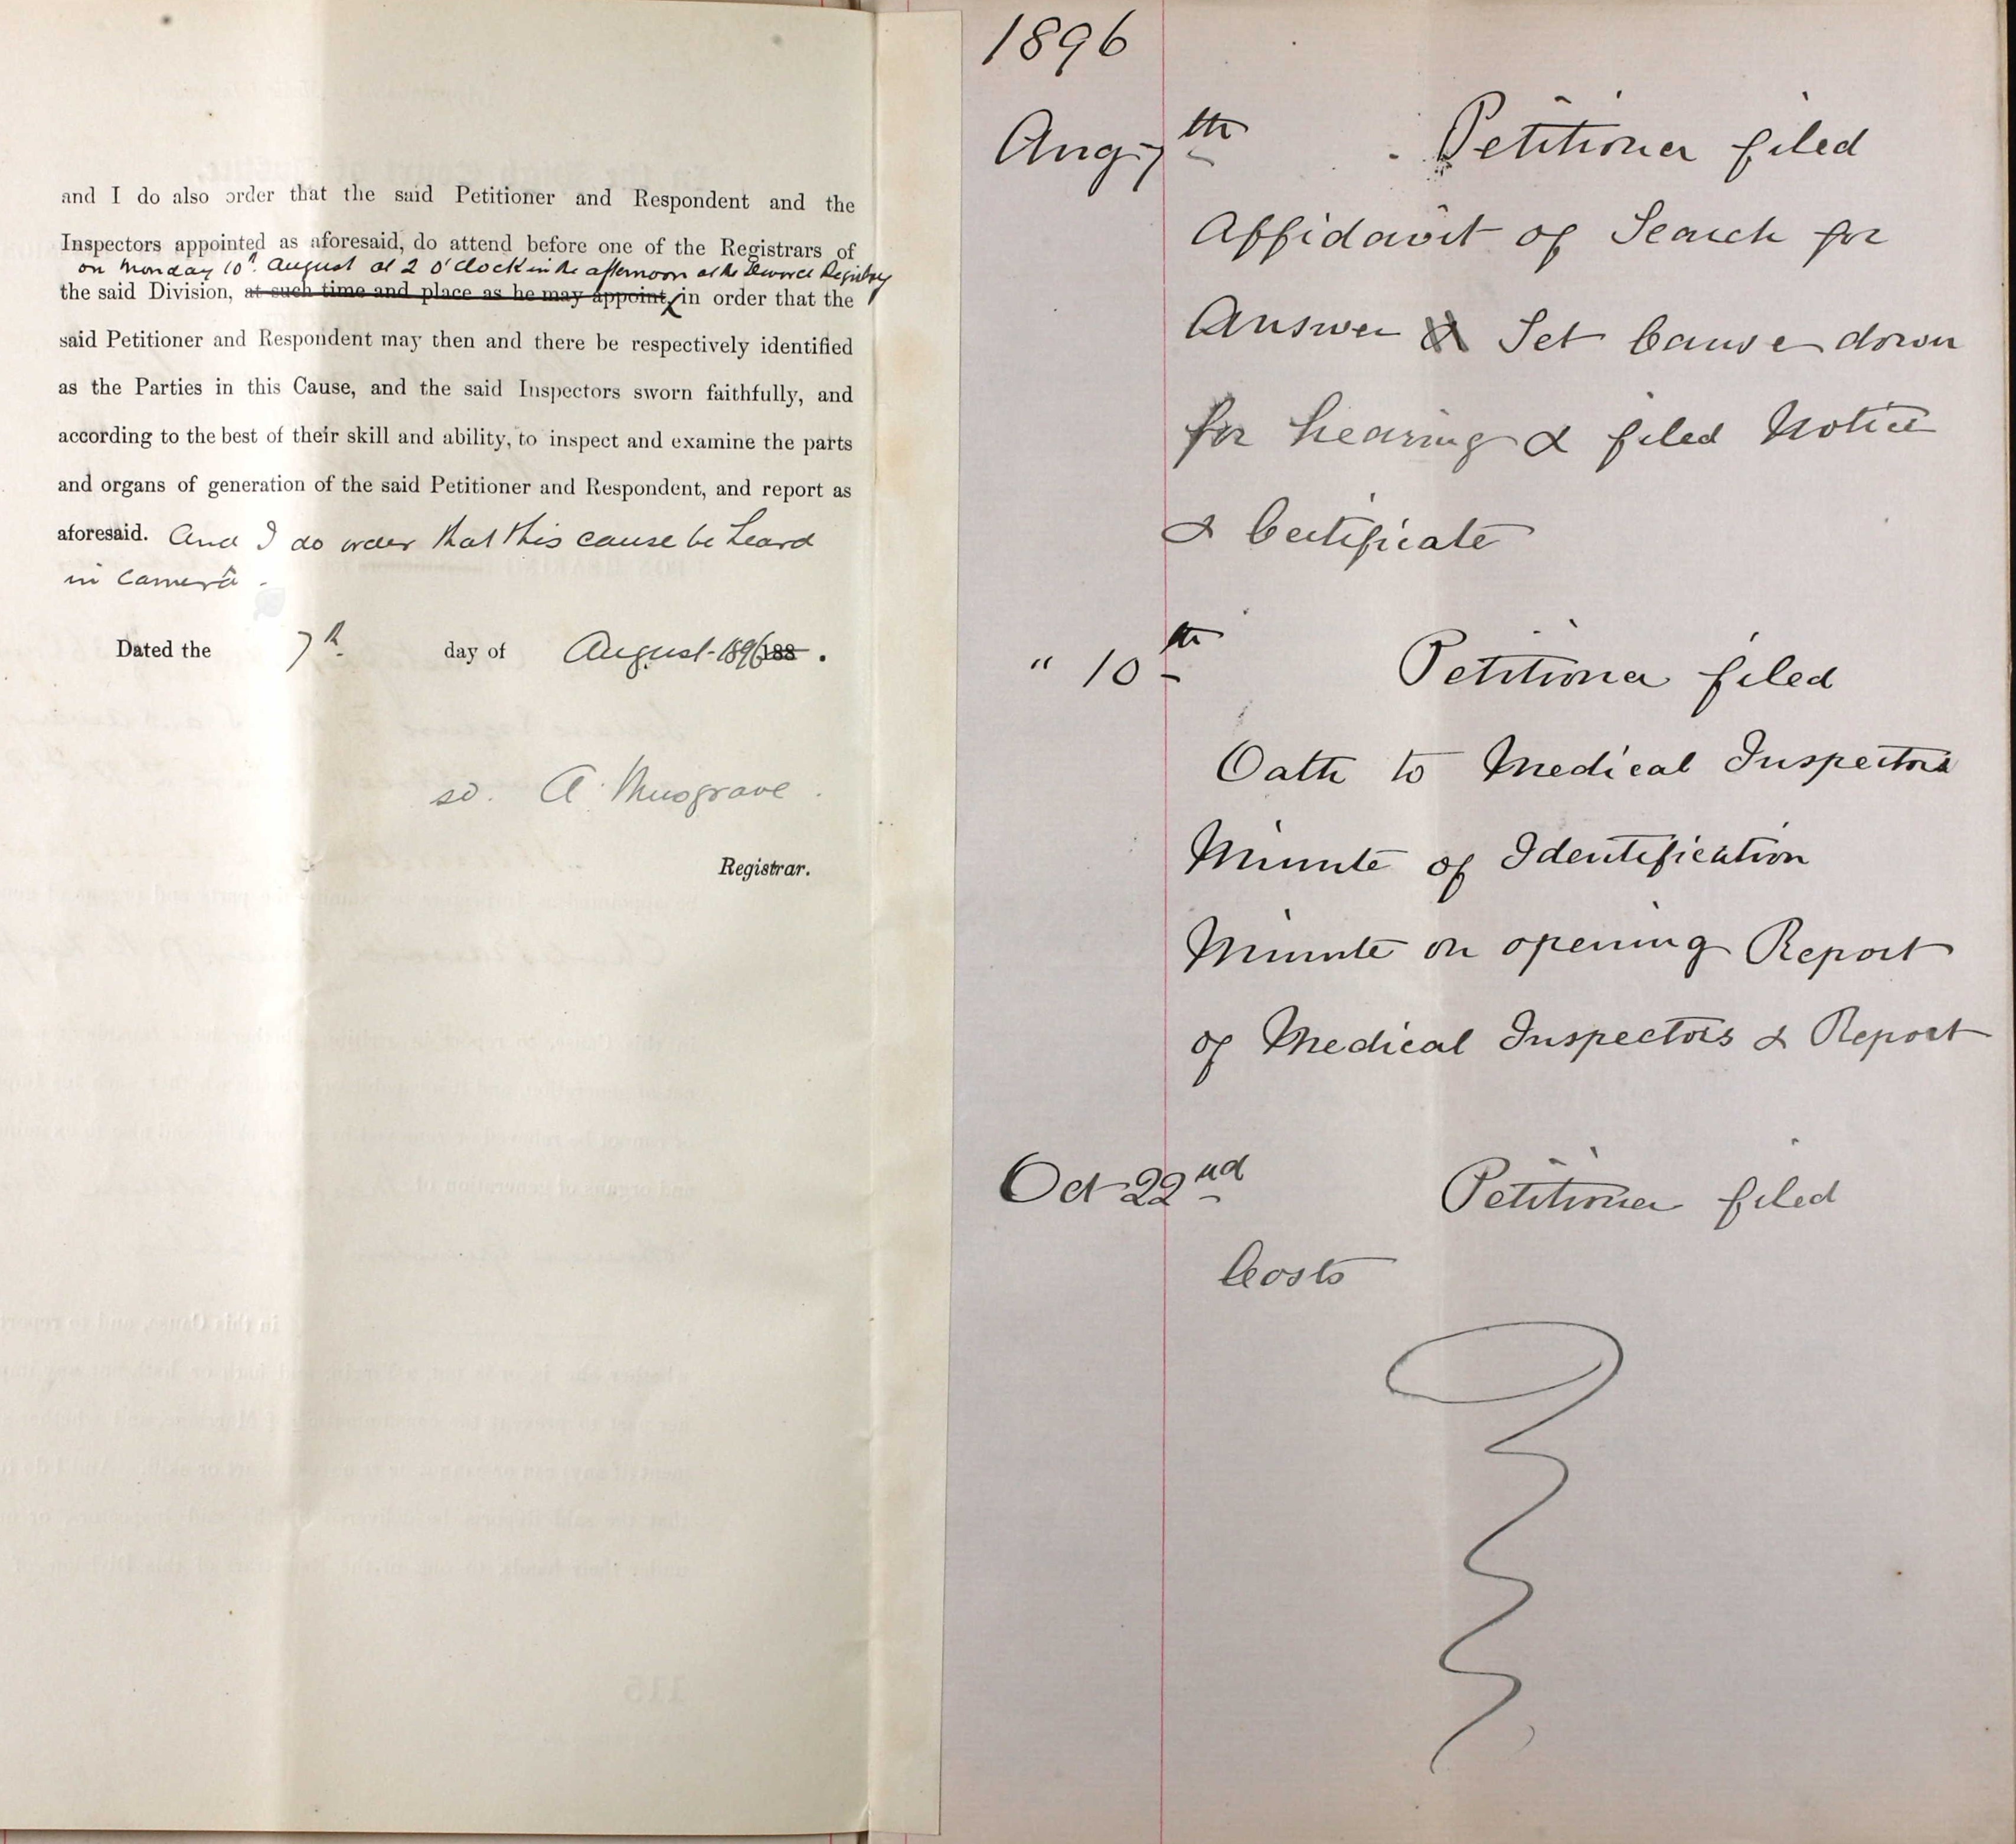 and I do also order that the said Petitioner and Respondent and the
Inspectors appointed as aforesaid, do attend before one of the Registrars of
on Monday 10th. August at 2 o'clock in the afternoon at the Divorce Registry
the said Division, at such time and place as he may appoint, in order that the
said Petitioner and Respondent may then and there be respectively identified
as the Parties in this Cause, and the said Inspectors sworn faithfully, and
according to the best of their skill and ability, to inspect and examine the parts
and organs of generation of the said Petitioner and Respondent, and report as
aforesaid. And I do order that this cause be heard
in camera.
Dated the 7th. day of August 1896 188 .
sd. A. Musgrave.
Registrar.
1896
Aug 7th Petitioner filed
Affidavit of Search for
Answer & Set Cause down
for hearing & filed Notice
& Certificate
" 10th Petitioner filed
Oath to Medical Inspectors
Minute of Identification
Minute on opening Report
of Medical Inspectors & Report
Oct 22nd Petitioner filed
Costs